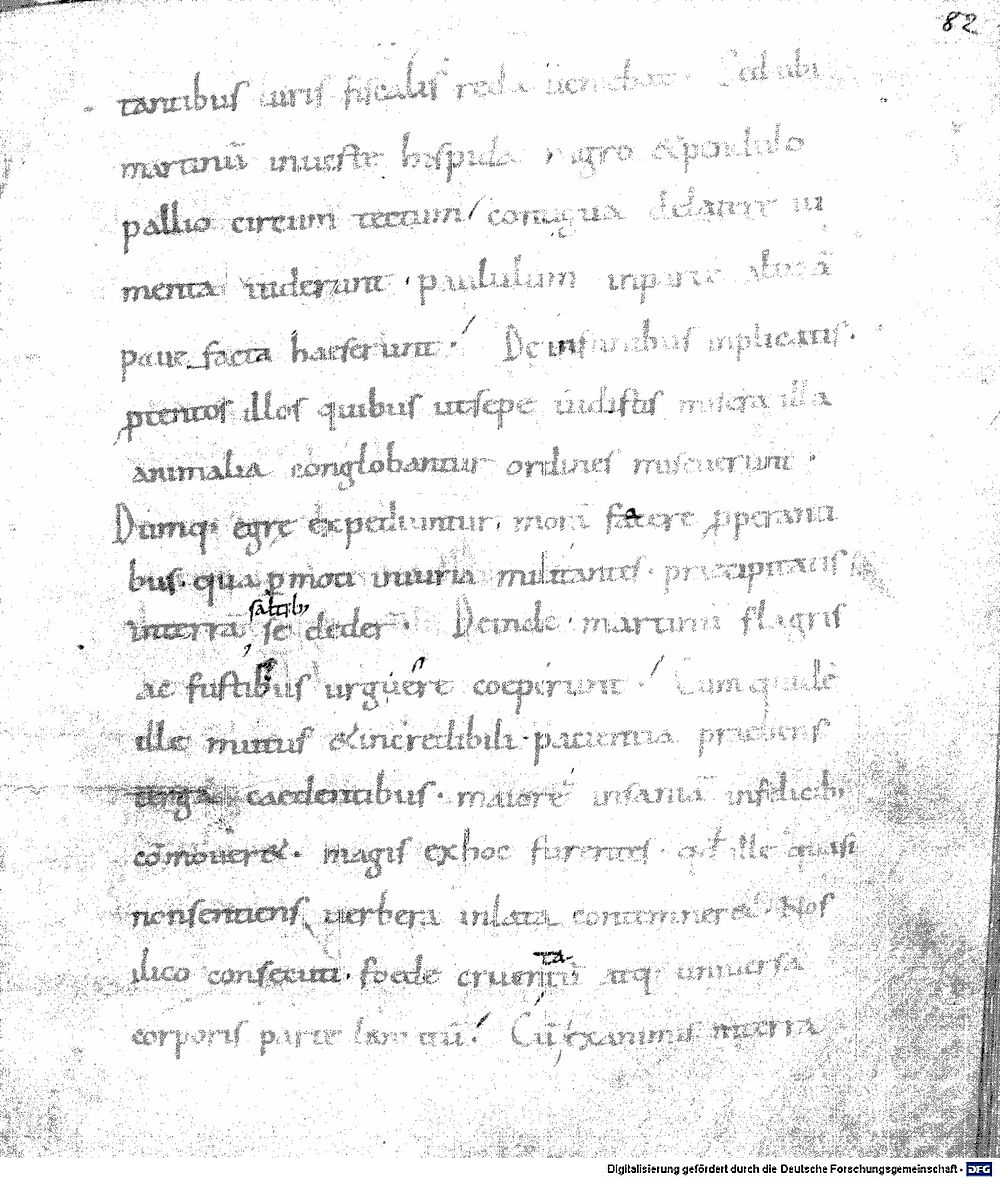 82
tantibus uiris fiscalis reda ueniebat. Sed ubi
martinū inueste hispida nigro &pendulo
pallio circum tectum contigua delatere iu
menta uiderunt. paululum inparte alterā
paue facta haeserunt. Deinfunibus inplicatis.
ptentos illos quibus utsepe uidistis misera illa
animalia conglobantur ordines miscuerunt.
Dumq; egre expediuntur, morā facere pperanti
bus. qua pmoti iniuria militantes. praecipitatis
interrā saltib; se deder̄. Deinde martinū flagris
ac fustibus urguere coeperunt. Cumquidē
ille mutus &incredibili patientia praebens
terga caedentibus. maiorē insaniā infelicib;
cōmouer&. magis exhoc furentes. qd ille quasi
nonsentiens, uerbera inlata contemner&. Nos
ilico consecuti. foede cruentatū atq; uniuersa
corporis parte laniatū. Cū exanimis interra
Digitalisierung gefördert durch die Deutsche Forschungsgemeinschaft - DFG